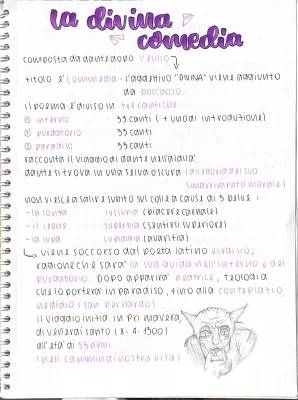 la divina
comedia
composta da dante dopo l'esilio
titolo è commedia - l'aggettivo "DIVINA" viene aggiunto
da boccaccio
il poema è diviso in tre cantiche:
① inferno 33 canti (+ uno di introduzione)
② purgatorio 33 canti
③ paradiso 33 canti
racconta il viaggio di dante nell'aldilà.
dante si trova in una selva oscura (allegoria del suo
smarrimento morale)
non riesce a salire subito sul colle a causa di 3 belve:
- la lonza lussuria (piacere carnale)
- il leone superbia (sentirsi superiore)
- la lupa cupidigia (avarizia)
viene soccorso dal poeta latino virgilio,
ragione che sarà la sua guida nell'inferno e del
purgatorio. Dopo apparirà beatrice, teologia
che lo porterà in paradiso, fino alla
(san bernardo)
il viaggio inizia in primavera,
di venerdì santo (8-4-1300)
all'età di 35 anni